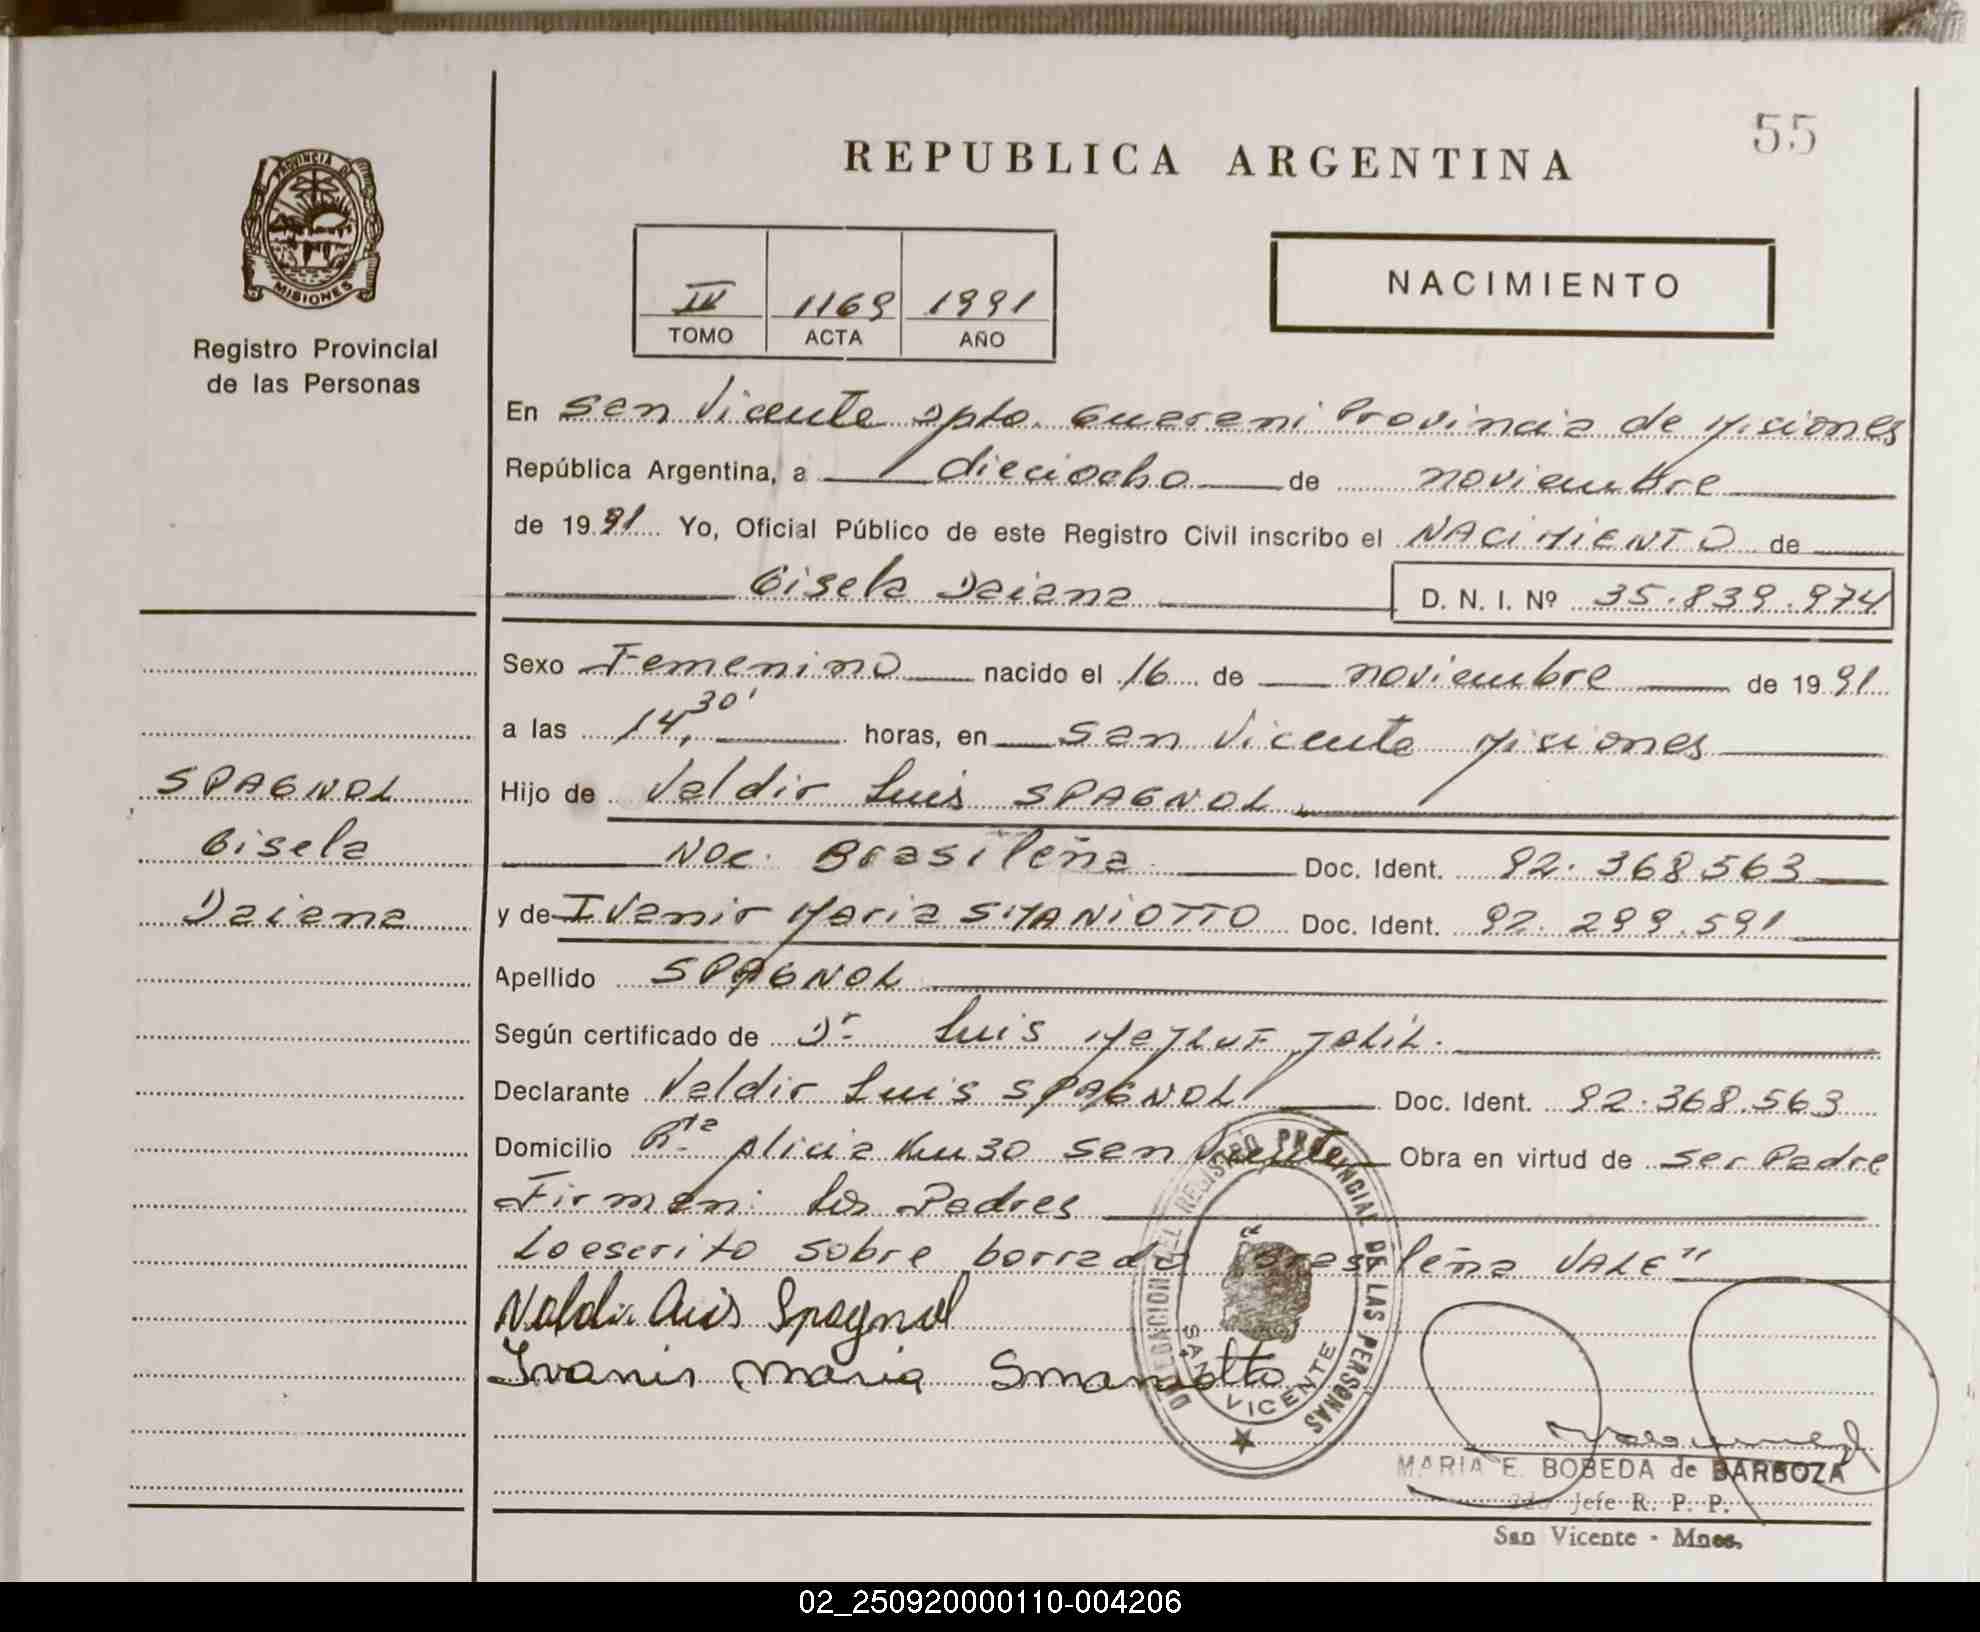 55
REPUBLICA ARGENTINA
PROVINCIA DE
MISIONES
Registro Provincial
de las Personas
III 1169 1991
TOMO ACTA AÑO
NACIMIENTO
En San Vicente Dpto. Guarani Provincia de Misiones
República Argentina, a dieciocho de noviembre
de 1991 Yo, Oficial Público de este Registro Civil inscribo el NACIMIENTO de
Gisela Daiana D. N. I. Nº 35.839.974
Sexo Femenino nacido el 16 de noviembre de 1991
a las 14,30' horas, en San Vicente Misiones
SPAGNOL
Hijo de Valdir Luis SPAGNOL
Gisela
Nac. Brasileña Doc. Ident. 92.368563
Daiana
y de IVanir Maria SMANIOTTO Doc. Ident. 92.299.591
Apellido SPAGNOL
Según certificado de Dr. Luis
Declarante Valdir Luis SPAGNOL Doc. Ident. 92.368.563
Domicilio Rta. Alicia Km 30 San Vicente Obra en virtud de ser Padre
Firman: los Padres
Lo escrito sobre borrado "Brasileña VALE"
Valdir Luis Spagnol
Ivanir Maria Smaniotto
DELEGACION DEL REGISTRO PROVINCIAL DE LAS PERSONAS
SAN VICENTE
MARIA E. BOBEDA de BARBOZA
2do Jefe R. P. P.
San Vicente - Mnes.
02_250920000110-004206